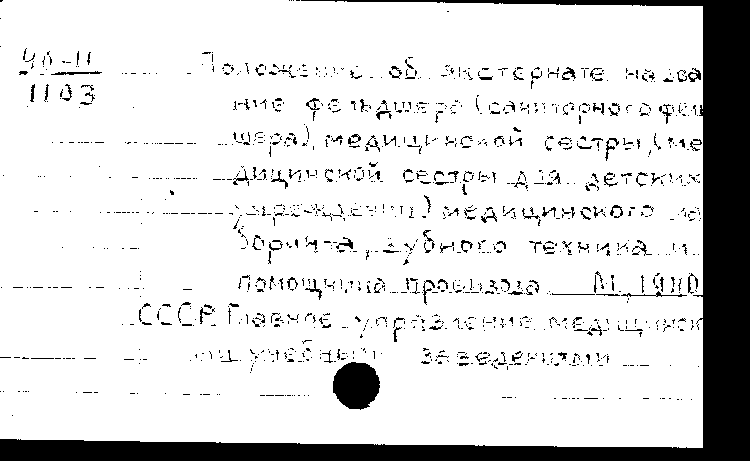 40-11
1103
Положение об экстернате на зва
ние фельдшера (санитарного фел
шера), медицинской сестры, (ме
дицинской сестры для детских
учреждений) медицинского ла
боранта, зубного техника и
помощника провизора М., 1940
СССР. Главное управление медицинск
ими учебными заведениями